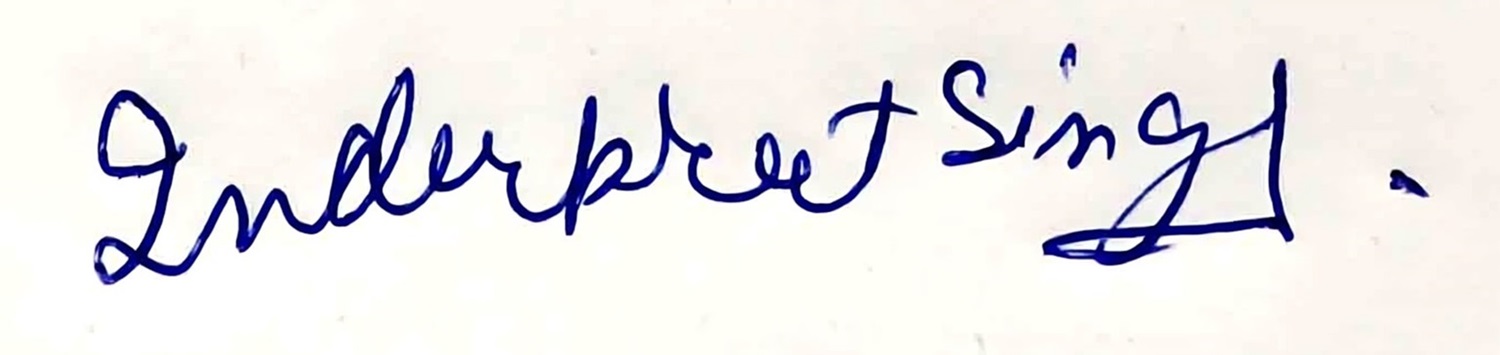 Inderpreet Singh.